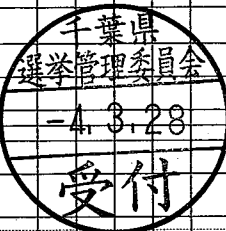 千葉県
選挙管理委員会
-4.3.28
受付